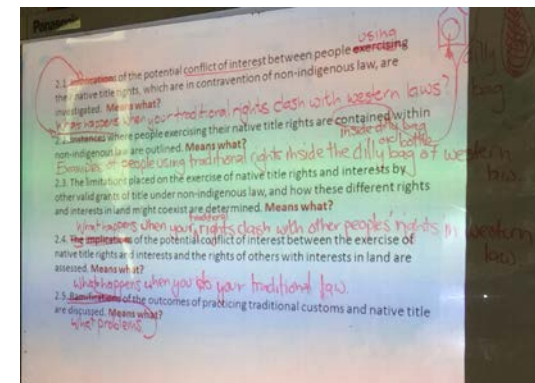 Panasonic
using
2.1. Implications of the potential conflict of interest between people exercising
their native title rights, which are in contravention of non-indigenous law, are
investigated. Means what?
What happens when your traditional rights clash with western laws?
dilly
bag
2.2. Instances where people exercising their native title rights are contained within
non-indigenous law are outlined. Means what?
inside dilly bag
bottle
Examples of people using traditional rights inside the dilly bag of western
law.
2.3. The limitations placed on the exercise of native title rights and interests by
other valid grants of title under non-indigenous law, and how these different rights
and interests in land might coexist are determined. Means what?
traditional
What happens when your rights clash with other peoples' rights in western
law
2.4. The implications of the potential conflict of interest between the exercise of
native title rights and interests and the rights of others with interests in land are
assessed. Means what?
What happens when you do your traditional law.
2.5. Ramifications of the outcomes of practicing traditional customs and native title
are discussed. Means what?
What problems